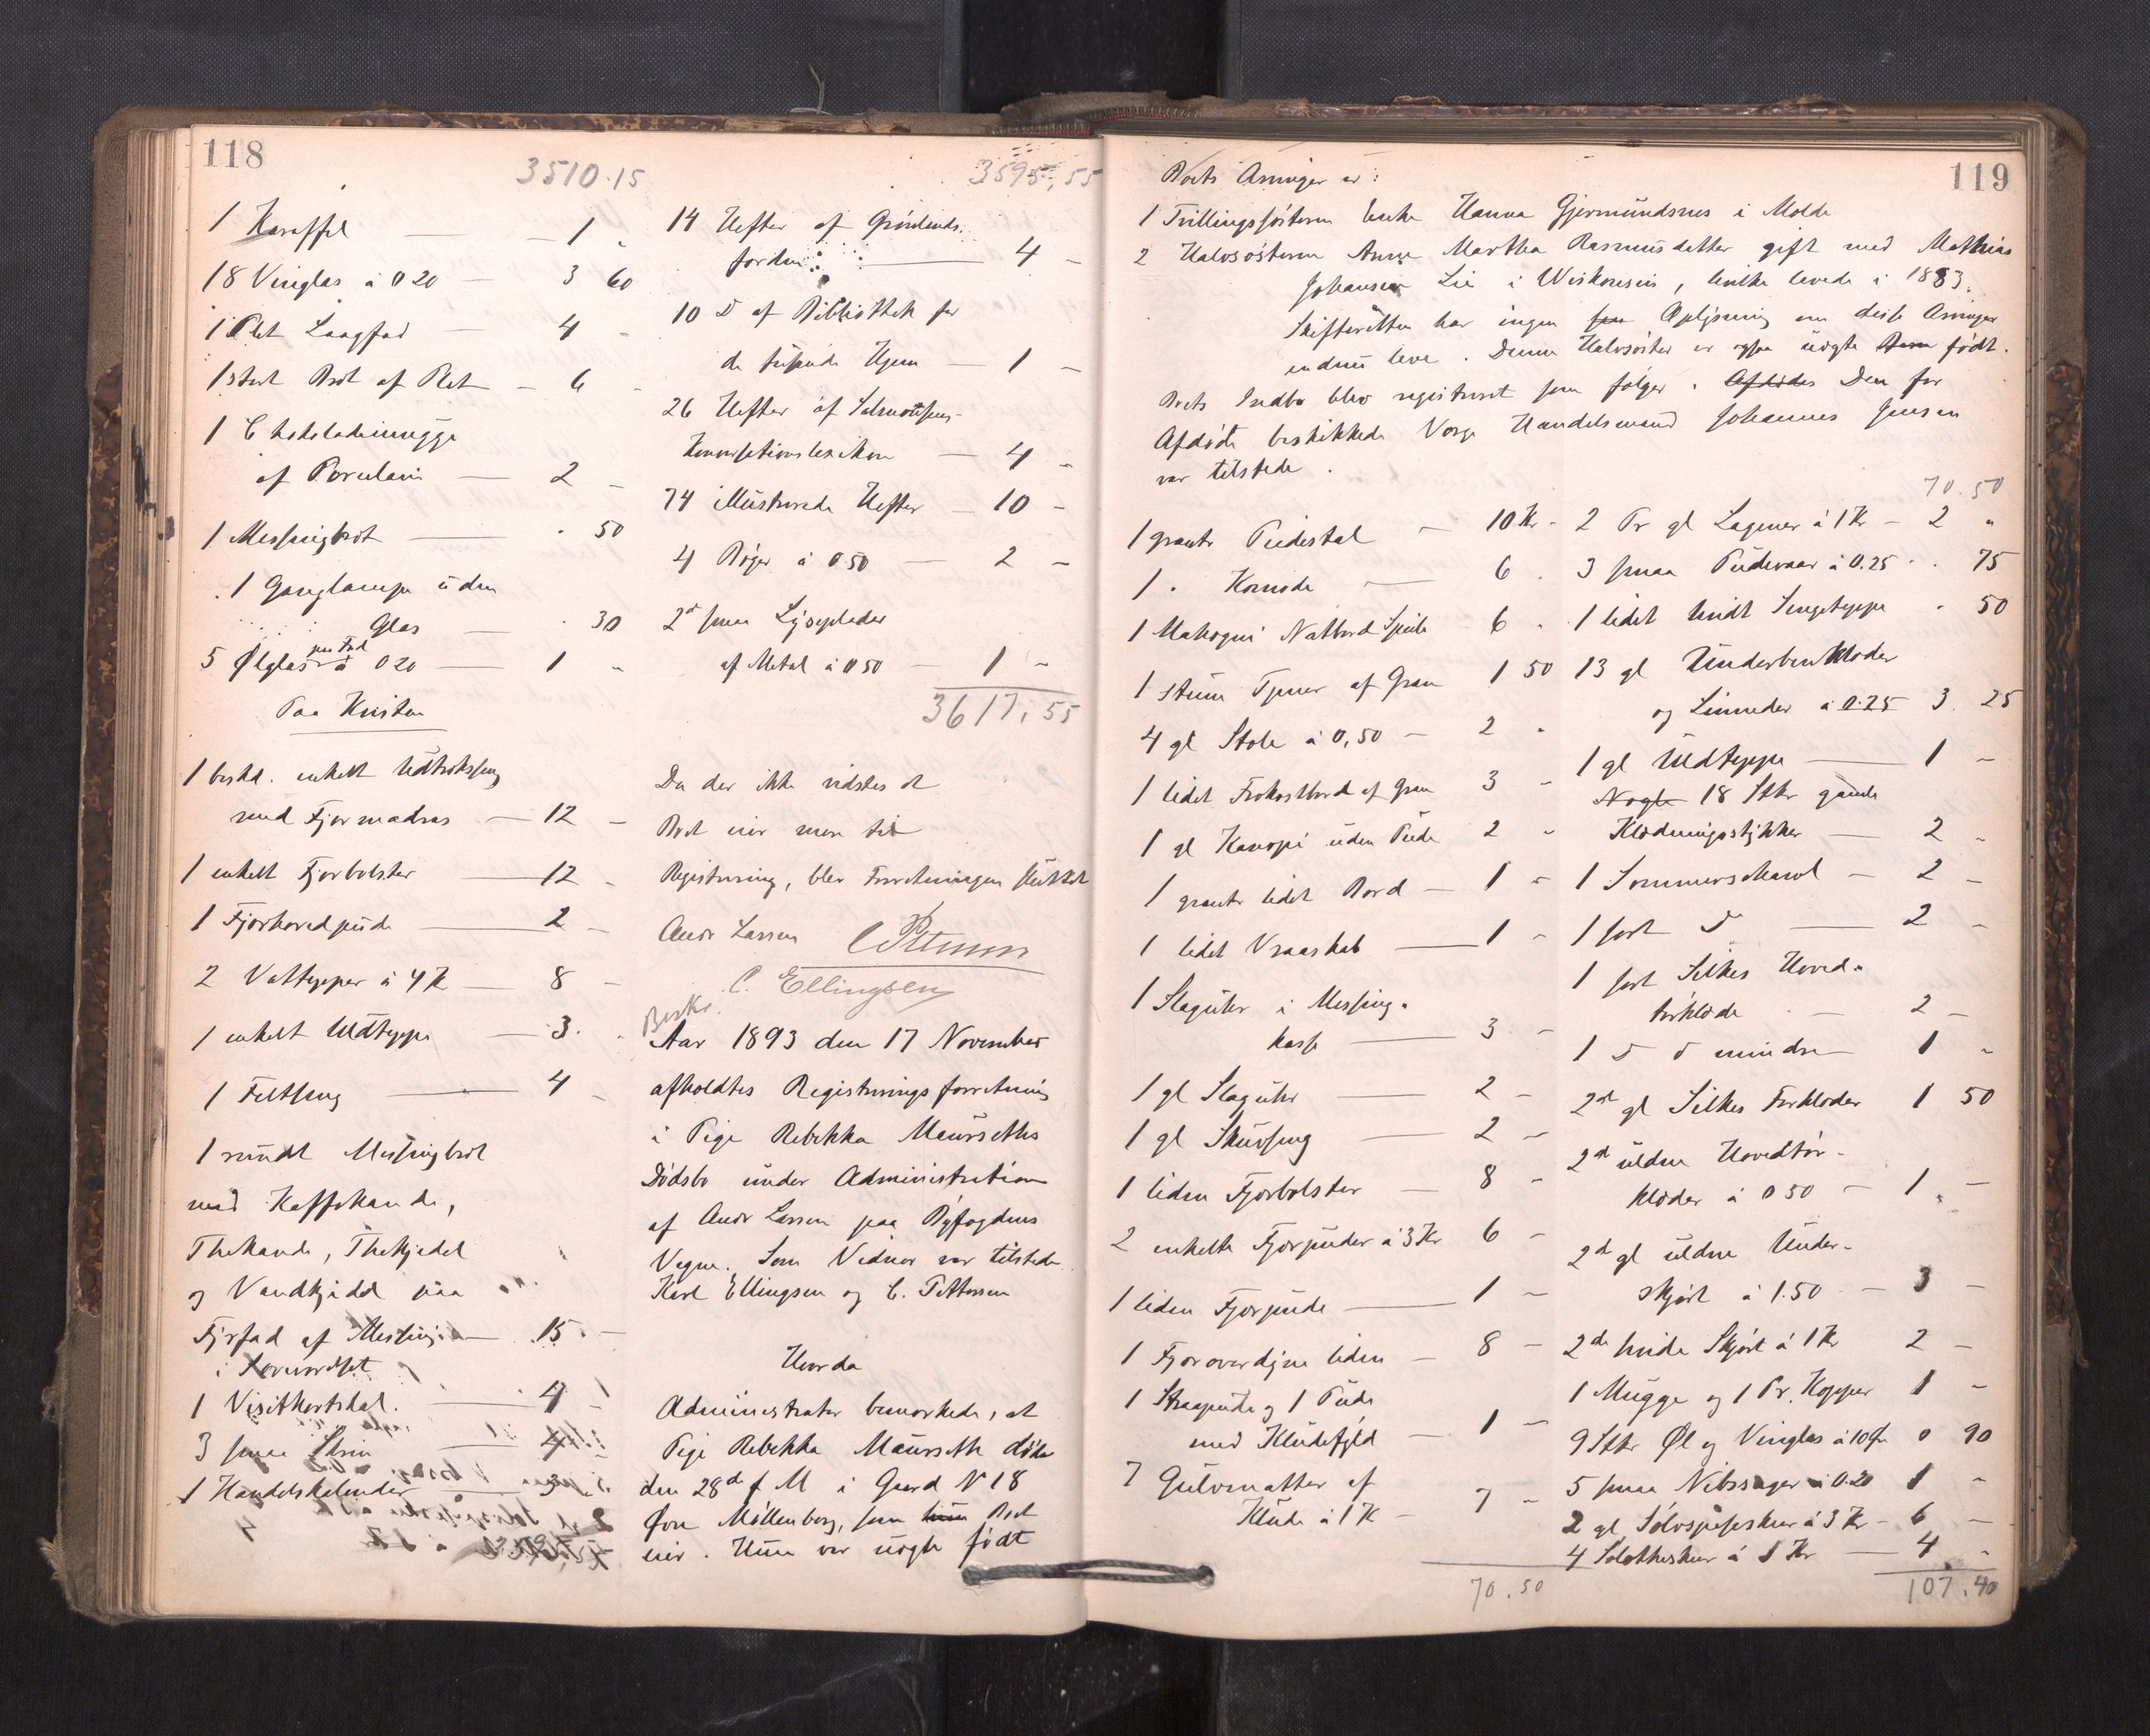 118
3510.15
1 Karaffel — 1 "
18 Vinglas à 0 20 — 3 60
1 Plet Laagfad — 4 -
1 stort Bret af Plet — 6 -
1 Chokolademugge
af Porculain — 2 -
1 Messingbret — " 50
1 Ganglampe uden
Glas — " 30
5 Ølglas paa Fod à 0 20 — 1 "
Paa Kvisten
1 beskd. enkelt Udtræksseng
med Fjærmadras — 12 -
1 enkelt Fjærbolster — 12 -
1 Fjærhovedpude — 2 -
2 Vattepper à 4 Kr — 8 -
1 enkelt Uldteppe — 3 "
1 Feltseng — 4 -
1 rundt Messingbret
med Kaffekande,
Thekande, Thekjedel
og Vandkjedel paa
Fyrfad af Messing — 15 -
i Soveværelset
1 Visitkortskal. 4 -
3 smaa Skrin — 4 -
1 Handelskalender — 3 -
3595,55
14 Hefter af Grønlands-
færden — 4 -
10 D af Bibliothek for
de tusende Hjem — 1 -
26 Hefter af Salmonsens
Konversationslexikon — 4 -
74 illustrerede Hefter — 10 -
4 Bøger à 0 50 — 2 -
2 smaa Lyseplader
af Metal à 0 50 — 1 -
3617,55
Da der ikke vidstes at
Boet eier mere til
Registrering, blev Forretningen sluttet
Andr Larsen C Pettersen
C. Ellingsen
Beskr.
Aar 1893 den 17 November
afholdtes Registreringsforretning
i Pige Rebekka Maurseths
Dødsbo under Administration
af Andr Larsen paa Byfogdens
Vegne. Som Vidner var tilstede
Karl Ellingsen og C. Pettersen
Hvorda
Administrator bemærkede, at
Pige Rebekka Maurseth døde
den 28de f M i Gaard N 18
Øvre Møllenberg, som hun Boet
eier. Hun var uægte født
119
Boets Arvinger er:
1 Tvillingsøsteren Enke Hanna Gjermundsnes i Molde
2 Halvsøsteren Anne Martha Rasmusdatter gift med Mathias
Johansen Lie i Wiskonsin, hvilke levede i 1883.
Skifteretten har ingen Oplysning om disse Arvinger
endnu leve. Denne Halvsøster er ogsaa uægte født.
Boets Indbo blev registreret som følger. Afdødes Den for
Afdøde beskikkede Verge Handelsmand Johannes Jensen
var tilstede.
1 grant Pidestal — 10 Kr -
1 " Komode — 6 "
1 Mahogni Natbord Speile 6 "
1 stum Tjener af Gran 1 50
4 gl Stole à 0,50 — 2 "
1 lidet Frokostbord af Gran 3 -
1 gl Kanapé uden Pude 2 -
1 grant lidet Bord — 1 -
1 lidet Vraaskab — 1 -
1 Slaguhr i Messing-
kasse — 3 -
1 gl Slaguhr — 2 -
1 gl Skuvseng — 2 -
1 liden Fjærbolster — 8 -
2 enkelte Fjærpuder à 3 Kr 6 -
1 liden Fjærpude — 1 -
1 Fjæroverdyne liden — 8 -
1 Straapude og 1 Pude
med Kludefyld — 1 -
7 Gulvmatter af
Klude à 1 Kr — 7 -
70.50
70.50
2 Pr gl Lagener à 1 Kr — 2 "
3 smaa Pudevaar à 0.25 " 75
1 lidet hvidt Sengeteppe " 50
13 gl Underbenklæder
og Linneder à 0.25 3 25
1 gl Uldteppe — 1 -
Nogle 18 Stkr gamle
Klædningsstykker — 2 -
1 Sommerschavl — 2 -
1 sort D — 2 -
1 sort Silkes Hoved-
tørklæde — 2 -
1 D D mindre — 1 -
2de gl Silkes Forklæder 1 50
2de uldne Hovedtør-
klæder à 0 50 — 1 -
2de gl uldne Under-
skjørt à 1.50 — 3 -
2de hvide Skjørt à 1 Kr 2 -
1 Mugge og 1 Pr. Kopper 1 -
9 Stkr Øl og Vinglas à 10 Ør 0 90
5 smaa Nibssager à 0.20 1 -
2 gl Sølvspiseskeer à 3 Kr — 6 -
4 Sølvtheskeer à 1 Kr — 4 -
107.40